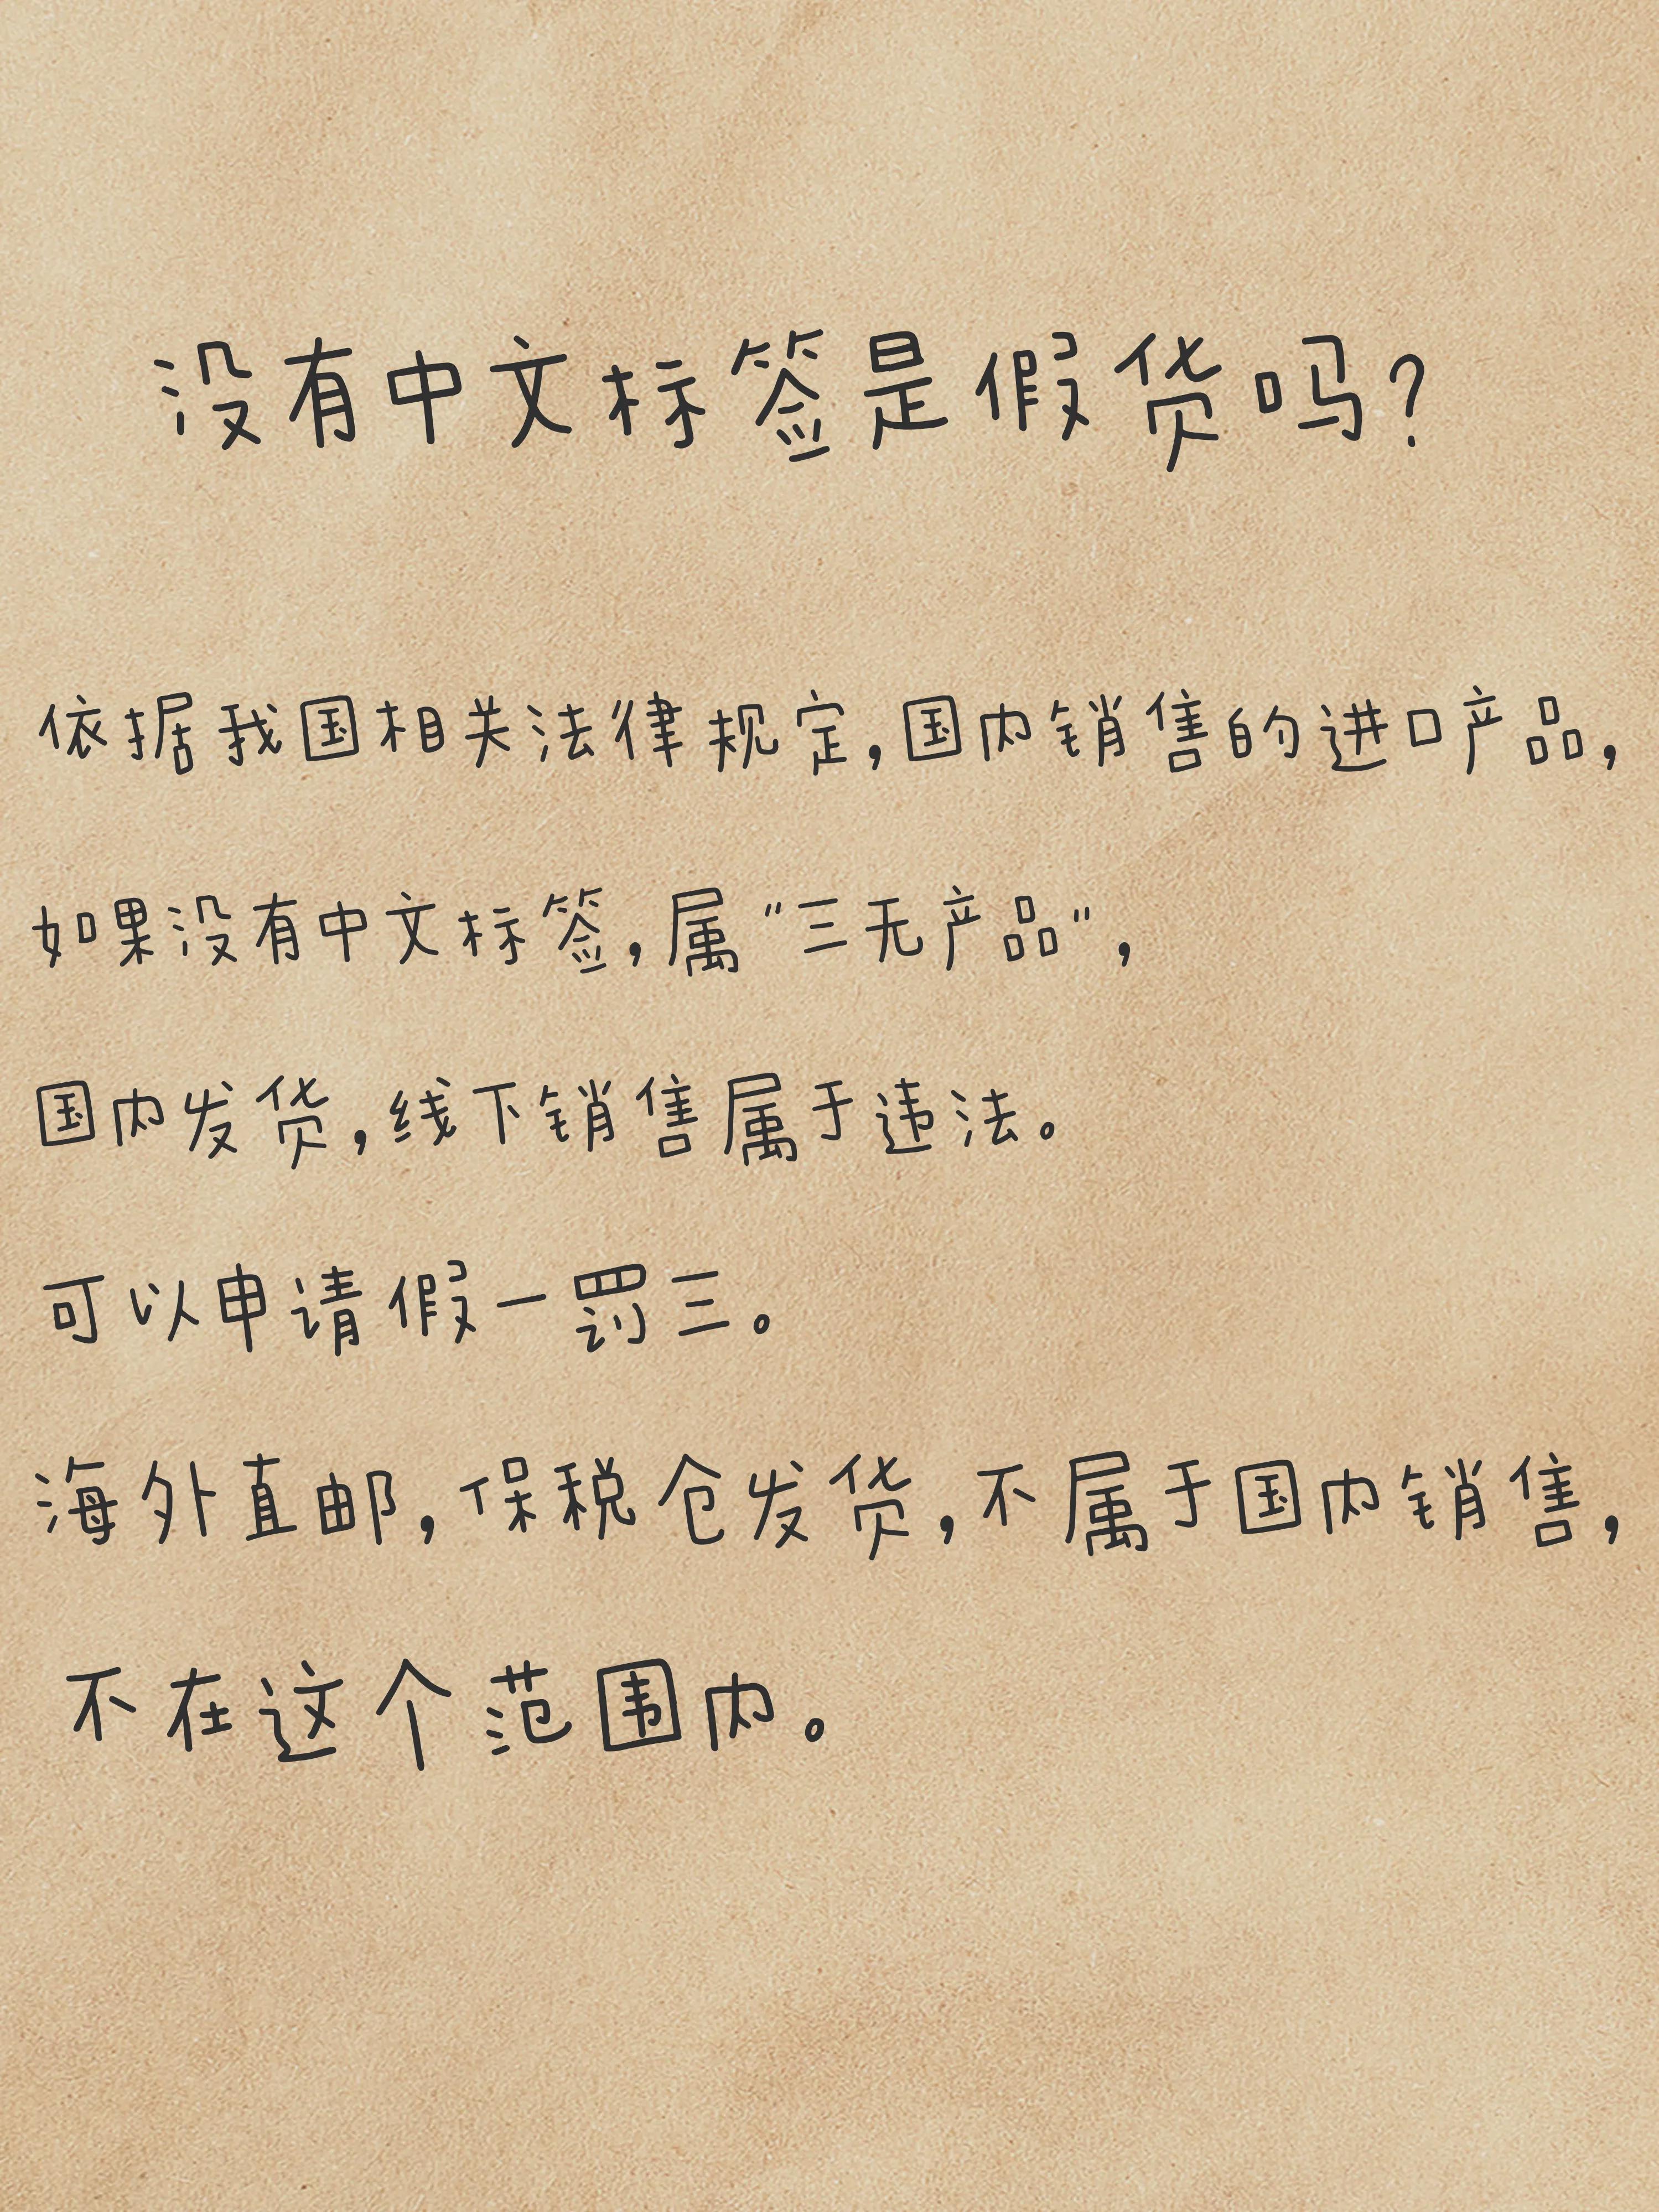 没有中文标签是假货吗？
依据我国相关法律规定，国内销售的进口产品，
如果没有中文标签，属"三无产品"，
国内发货，线下销售属于违法。
可以申请假一罚三。
海外直邮，保税仓发货，不属于国内销售，
不在这个范围内。